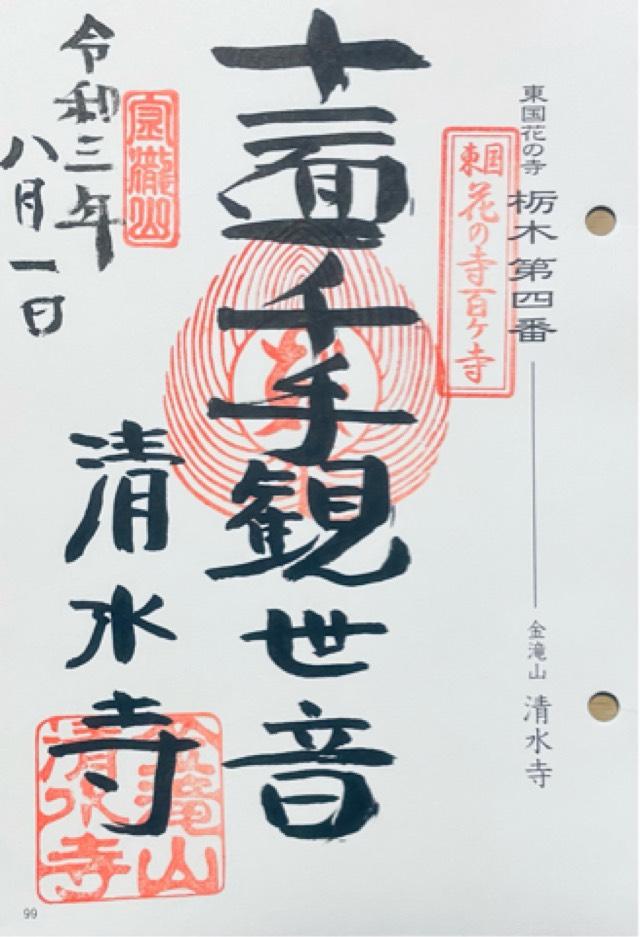 東国花の寺 栃木第四番
金滝山 清水寺
東国
花の寺百ヶ寺
十一面千手観世音
清水寺
金瀧山
令和三年
八月一日
金瀧山
清水寺
99